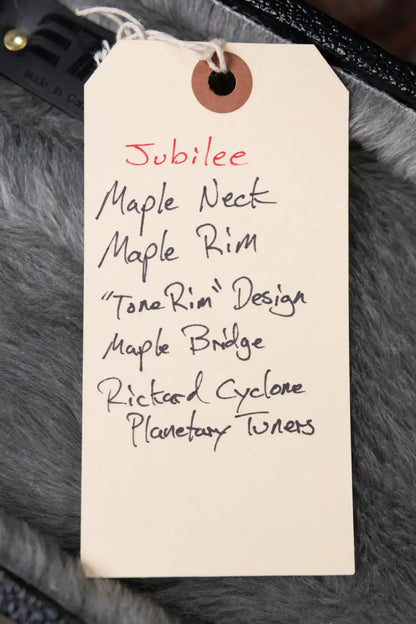 Made in
Jubilee
Maple Neck
Maple Rim
"Tone Rim" Design
Maple Bridge
Rickard Cyclone
Planetary Tuners